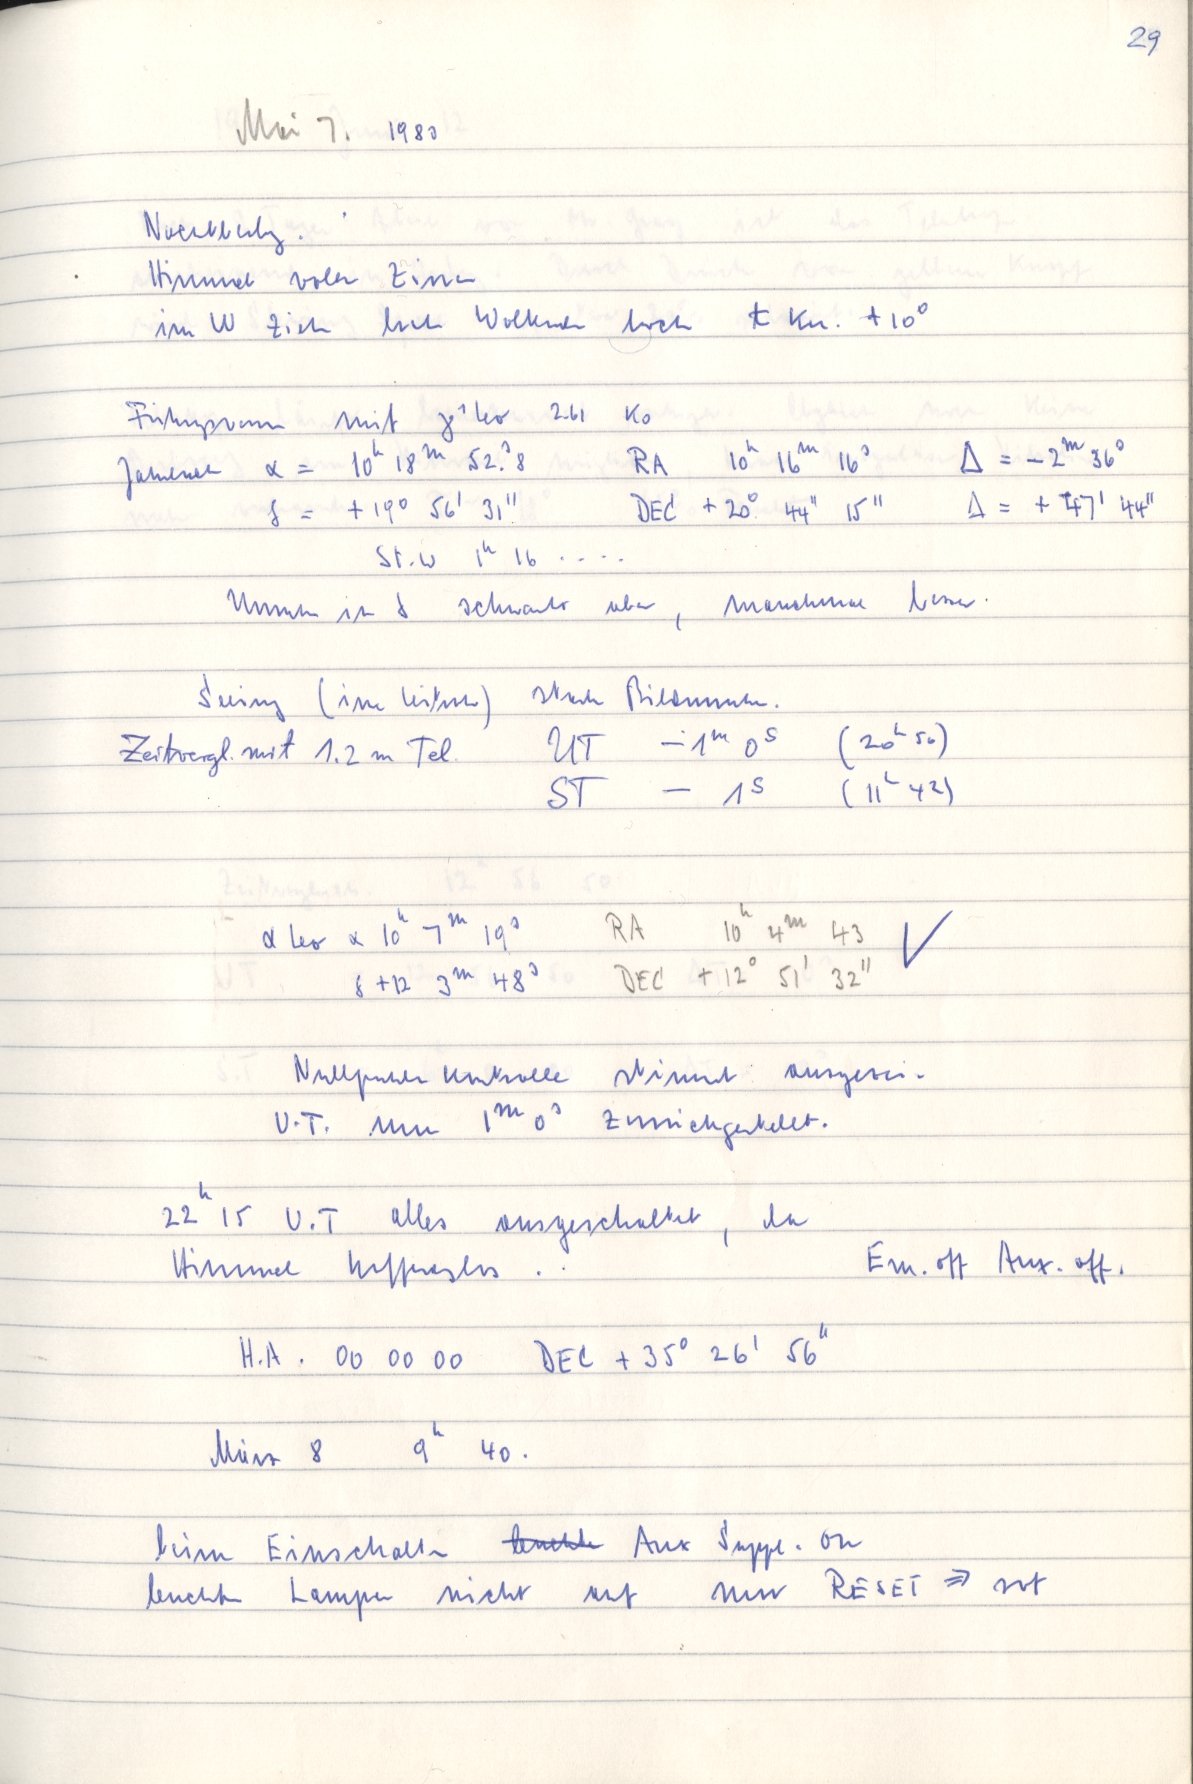 29
Mai 7. 1980
Himmel voller Zirren
im W ziehen Wolken hoch t Ku. +10°
mit γ¹ Leo 2.61 K0
α = 10h 18m 52.s8 RA 10h 16m 16s Δ = -2m 36s
δ = +19° 56' 31" DEC +20° 44" 15" Δ = + 47' 44"
St.W 1h 16 .....
in δ schwankt aber, manchmal besser.
Seeing (im Leitrohr) starke
Zeitvergl. mit 1.2 m Tel. UT -1m 0s (20h 50)
ST - 1s (11h 42)
α Leo α 10h 7m 19s RA 10h 4m 43 ✓
δ +12 3m 48s DEC +12° 51' 32"
Nullpunkt Kontrolle stimmt ausgez.
U.T. um 1m 0s zurückgestellt.
22h 15 U.T alles ausgeschaltet, da
Himmel hoffnungslos .. Em. off Aux. off.
H.A. 00 00 00 DEC +35° 26' 56"
März 8 9h 40.
beim Einschalten Aux Suppl. on
leuchten Lampen nicht auf nur RESET ⇒ rot